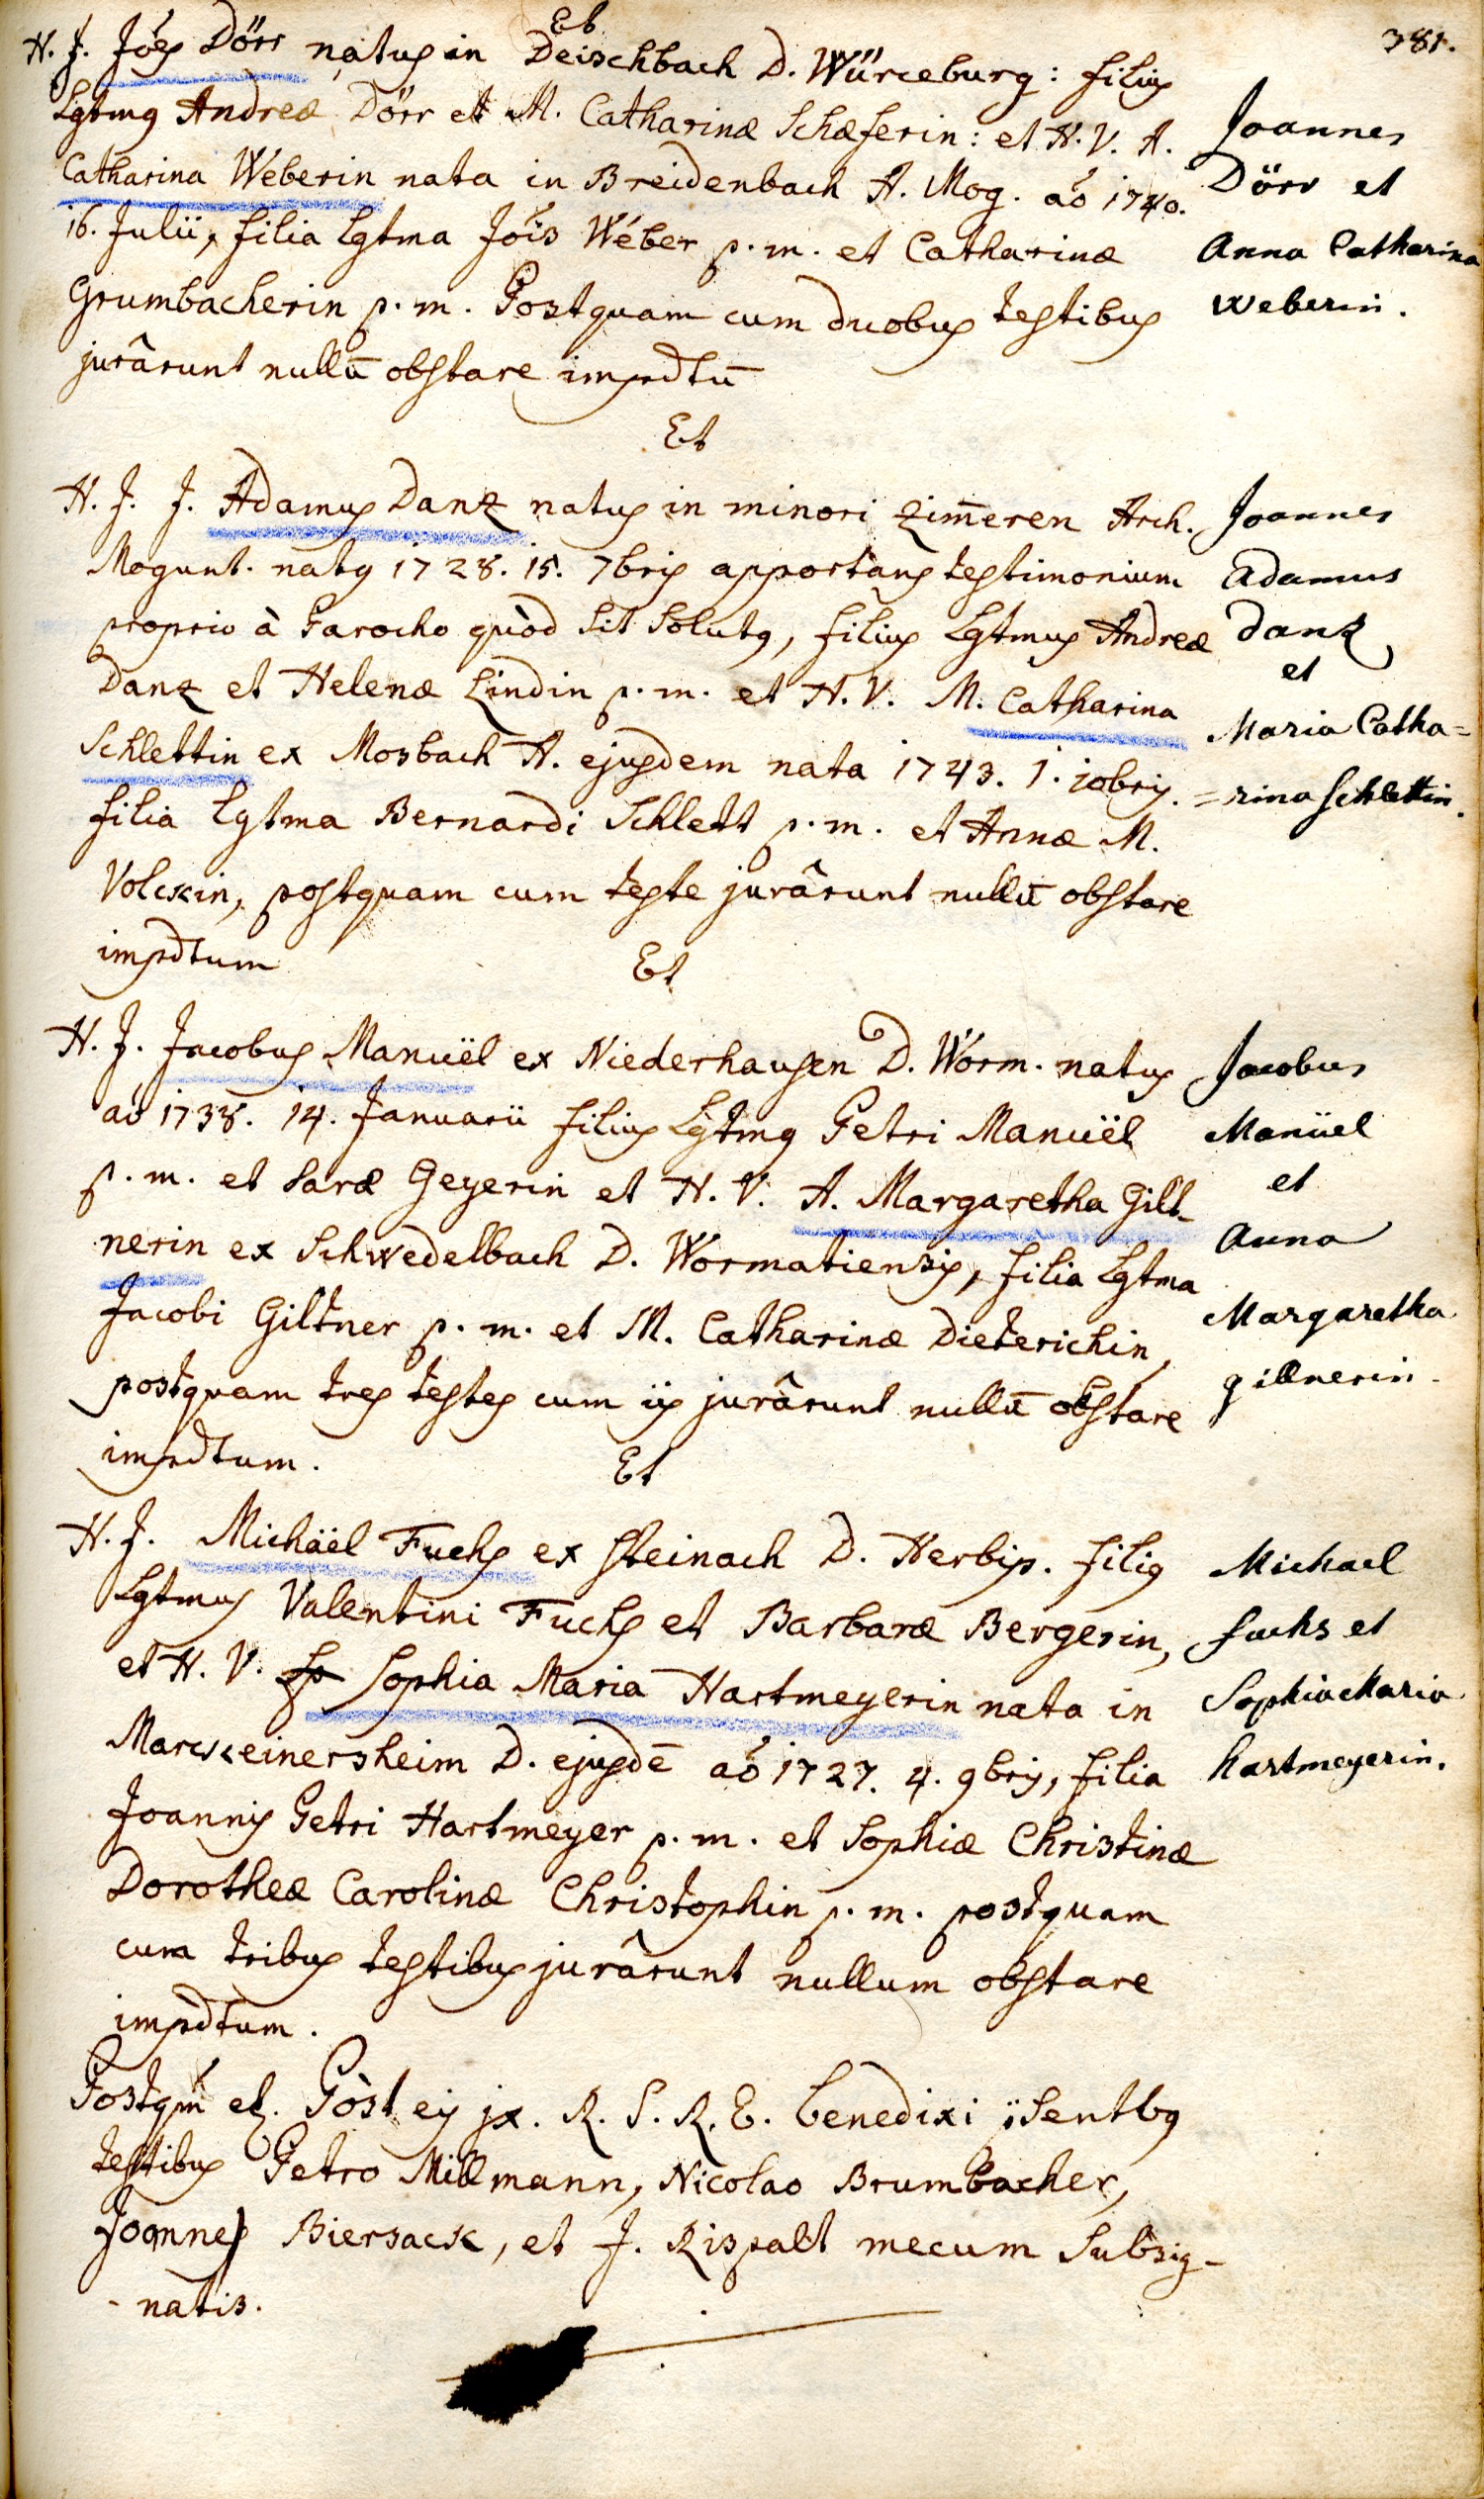 381.
Et
H. J. Jóes Dörr natus in Deischbach D. Würceburg: filius
Lgtmg Andreæ Dörr et M. Catharinæ Schæferin: et H. V. A.
Catharina Weberin nata in Breidenbach A. Mog. aó 1740.
16. Julii, filia lgtma Jóis Wéber p. m. et Catharinæ
Grumbacherin p. m. Postquam cum duobus testibus
jurârunt nullū obstare impdtū
Joannes
Dörr et
Anna Catharina
Weberin.
Et
H. J. J. Adamus Danz natus in minori Zim̄eren Arch.
Mogunt. natg 1728. 15. 7bris apportans testimonium
proprio à Parocho quòd sit solutg, filius Lgtmus Andreæ
Danz et Helenæ Lindin p. m. et H. V. M. Catharina
Schlettin ex Mosbach A. ejusdem nata 1743. 1. 10bris.
filia lgtma Bernardi Schlett p. m. et Annæ M.
Volckin, postquam cum teste jurârunt nullū obstare
impdtum
Joannes
Adamus
Danz
et
Maria Catha=
=rina Schlettin.
Et
H. J. Jacobus Manuël ex Niederhausen D. Worm. natus
aó 1738. 14. Januarii filius Lgtmg Petri Manuël
p. m. et Saræ Geyerin et H. V. A. Margaretha Gilt-
nerin ex Schwedelbach D. Wormatiensis, filia Lgtma
Jacobi Giltner p. m. et M. Catharinæ Dieterichin,
postquam tres testes cum iis jurârunt nullū obstare
impdtum.
Jacobus
Manüel
et
Anna
Margaretha
gillnerin.
Et
H. J. Michäel Fuchs ex Steinach D. Herbip. filig
Lgtmus Valentini Fuchs et Barbaræ Bergerin,
et H. V. Sp Sophia Maria Hartmeyerin nata in
Marckeinersheim D. ejusdē aó 1727. 4. 9bris, filia
Joannis Petri Hartmeyer p. m. et Sophiæ Christinæ
Dorotheæ Carolinæ Christophin p. m. postquam
cum tribus testibus jurârunt nullum obstare
impdtum.
Michael
fuchs et
Sophia Maria
hartmeyerin.
Postqm̄ et. Pòst eis jx. R. S. R. E. benedixi p̈sentbg
testibus Petro Millmann, Nicolao Brumbacher,
Joanne Biersack, et J. Rispalt mecum subsig-
-natis.